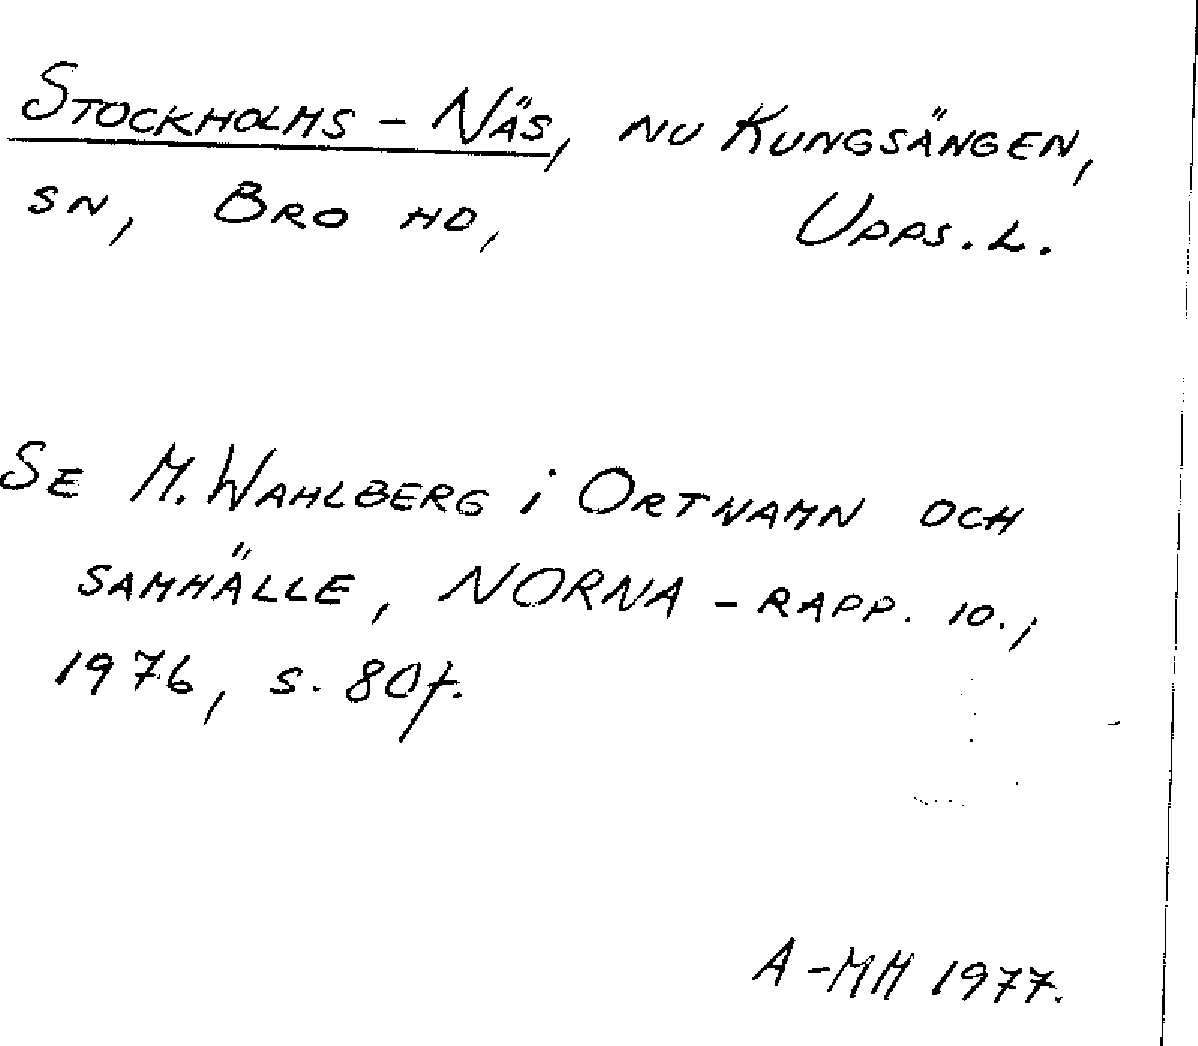 Stockholms-Näs, nu Kungsängen,
sn, Bro hd, Upps.l.
Se M. Wahlberg i Ortnamn och
samhälle, NORNA-rapp. 10.,
1976, s. 80f.
A-MH 1977.